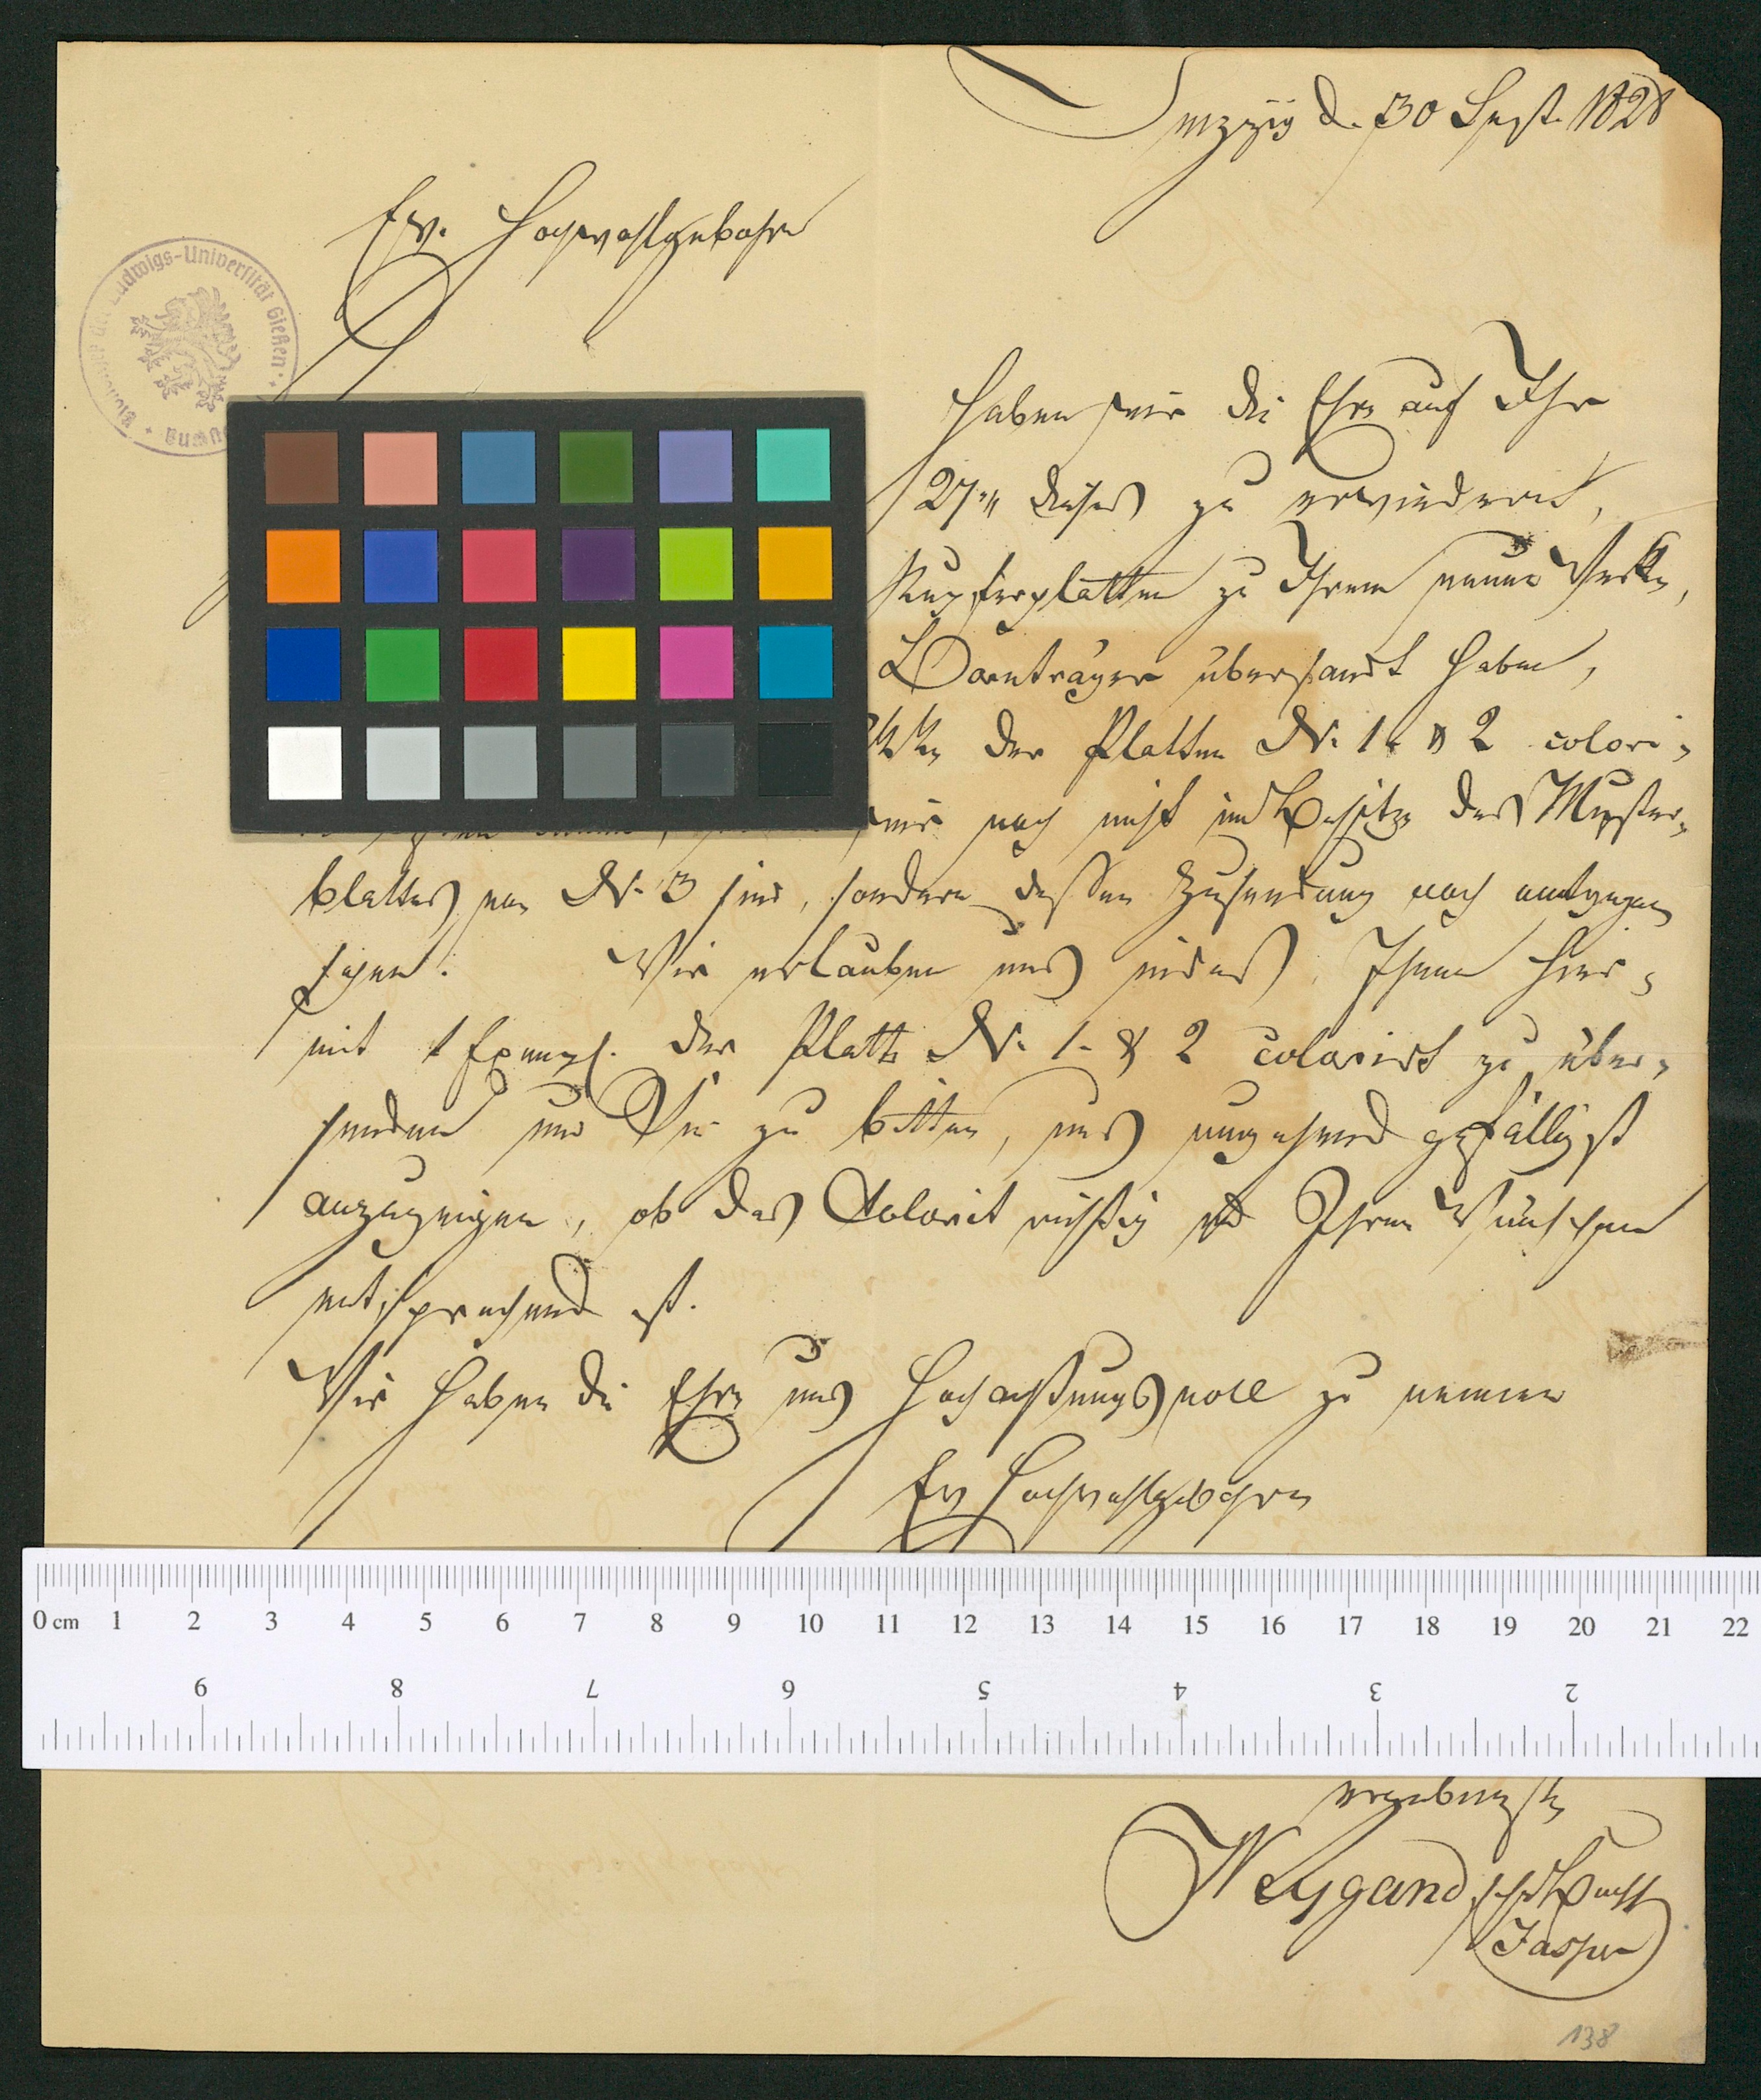 Leipzig d. 30 Sept. 1828
Ew. Hochwohlgebohrn
haben wir die Ehre auf Ihr
27ten dieses zu erwiedern,
Kupferplatten zu Ihrem neuen Werke,
Borntraeger übersandt haben,
der Platten No. 1 & 2 colori-
wir noch nicht im Besitze des Muster-
blattes von No. 3 sind, sondern dessen Zusendung noch entgegen
sehen. Wir erlauben uns indess Ihnen hier-
mit 1 Exempl. der Platte No. 1 & 2 colorirt zu über-
senden und Sie zu bitten, uns umgehend gefälligst
anzuzeigen, ob das Colorit richtig und Ihren Wünschen
entsprechend ist.
Wir haben die Ehre uns Hochachtungsvoll zu nennen
Ew Hochwohlgebohrn
ergebenste
Weygand'sche Buchh
Jasper
138
Ludwigs-Universität Gießen
0 cm 1 2 3 4 5 6 7 8 9 10 11 12 13 14 15 16 17 18 19 20 21 22
9 8 7 6 5 4 3 2